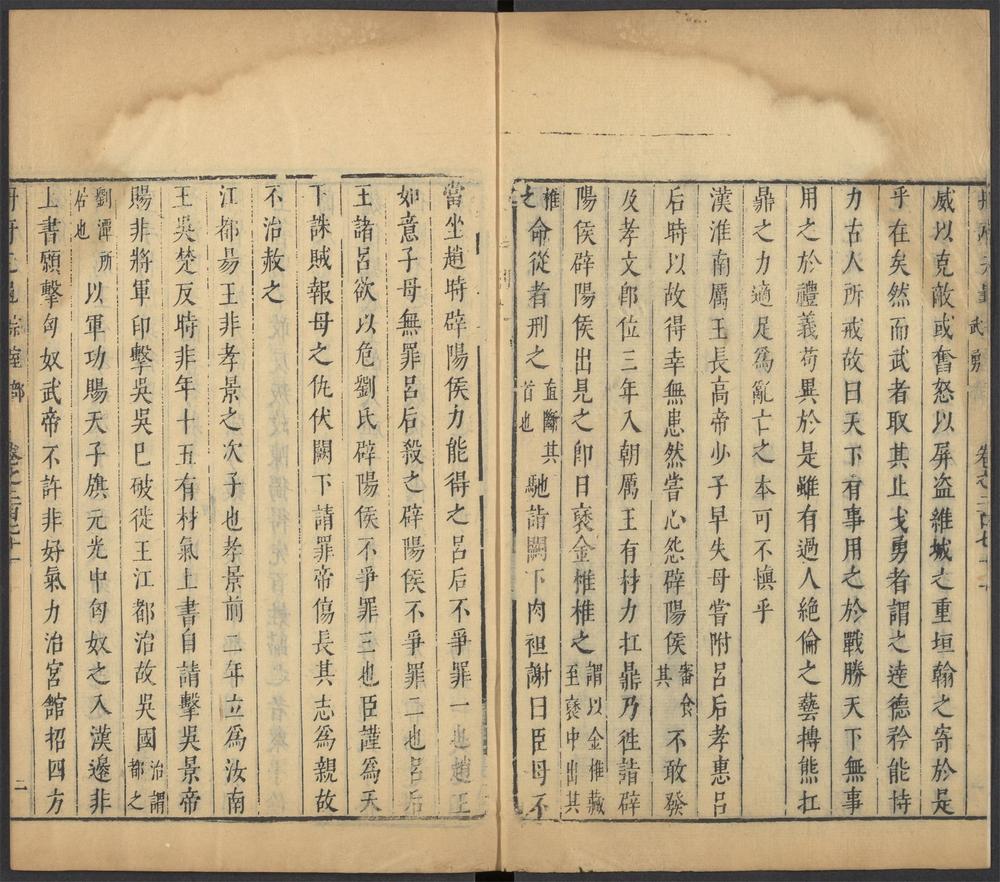 武勇
威以克敵或奮怒以屏盗維城之重垣翰之寄於是
乎在矣然而武者取其止戈勇者謂之達德矜能恃
力古人所戒故曰天下有事用之於戰勝天下無事
用之於禮義苟異於是雖有過人絶倫之藝摶熊扛
鼎之力適足爲亂亡之本可不愼乎
漢淮南厲王長高帝少子早失母嘗附呂后孝惠呂
后時以故得幸無患然嘗心怨辟陽侯審食其不敢發
及孝文即位三年入朝厲王有材力扛鼎乃徃請辟
陽侯辟陽侯出見之即日褎金椎椎之謂以金椎藏至褎中出其
椎之命從者刑之直斷其首也馳詣闕下肉袒謝曰臣母不
當坐趙時辟陽侯力能得之呂后不爭罪一也趙王
如意子母無罪呂后殺之辟陽侯不爭罪二也呂后
王諸呂欲以危劉氏辟陽侯不爭罪三也臣謹爲天
下誅賊報母之仇伏闕下請罪帝傷長其志爲親故
不治赦之
江都昜王非孝景之次子也孝景前二年立爲汝南
王吳楚反時非年十五有材氣上書自請擊吳景帝
賜非將軍印擊吳吳巳破徙王江都治故吳國治謂都之
劉濞所居也以軍功賜天子旗元光中匈奴之入漢邊非
上書願擊匈奴武帝不許非好氣力治宮館招四方
二